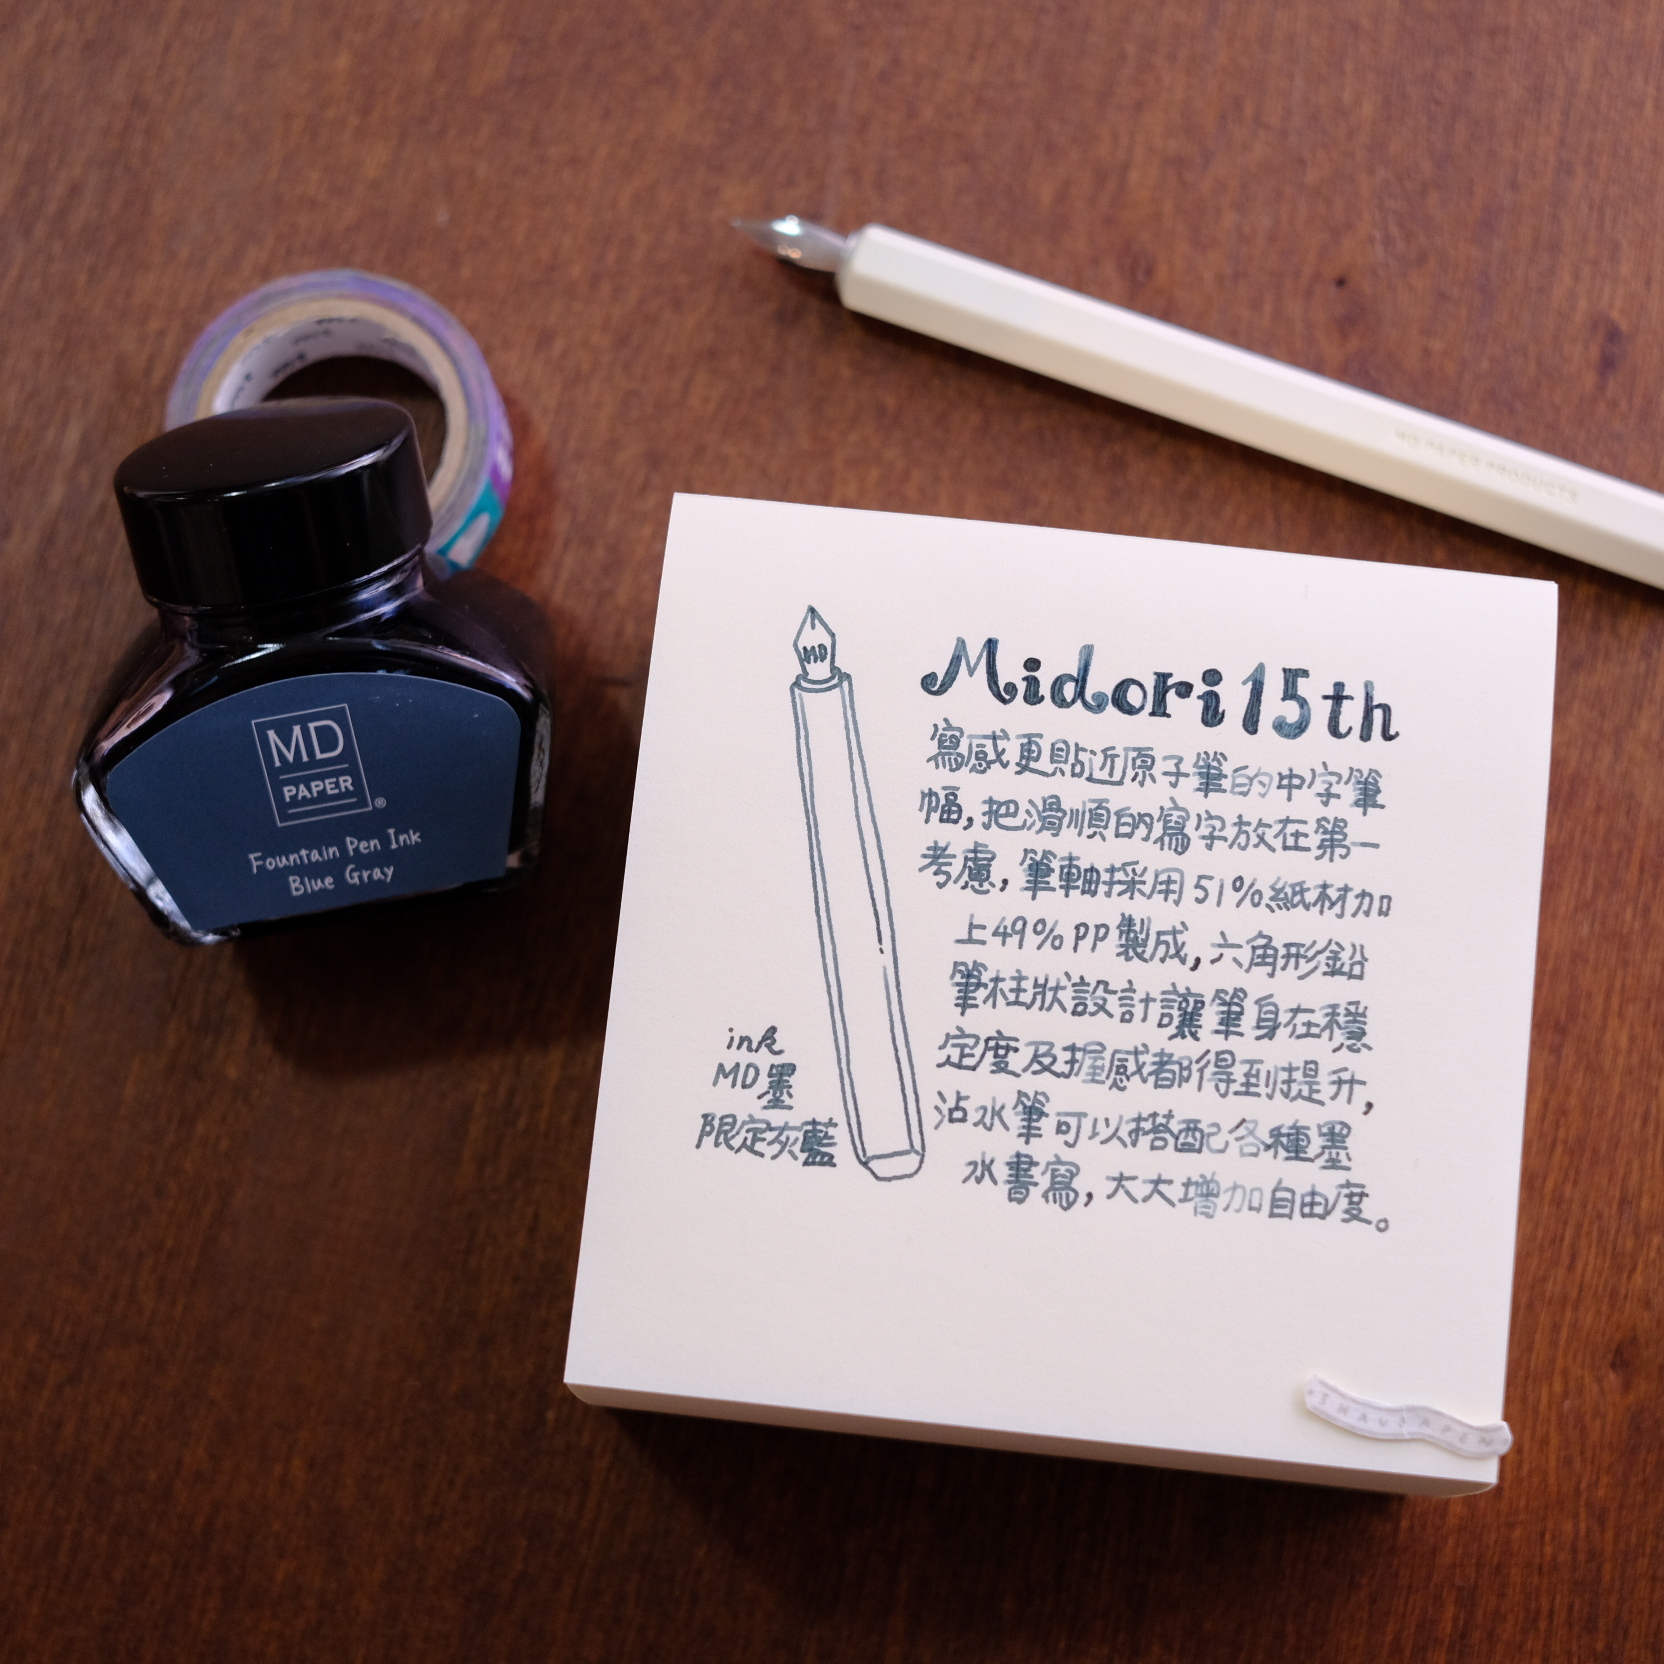 MD
PAPER
®
Fountain Pen Ink
Blue Gray
MD PAPER PRODUCTS
MD
Midori 15th
寫感更貼近原子筆的中字筆
幅,把滑順的寫字放在第一
考慮,筆軸採用51%紙材加
上49%PP製成,六角形鉛
筆柱狀設計讓筆身在穩
定度及握感都得到提升,
沾水筆可以搭配各種墨
水書寫,大大增加自由度。
ink
MD墨
限定灰藍
I HAVE A PEN